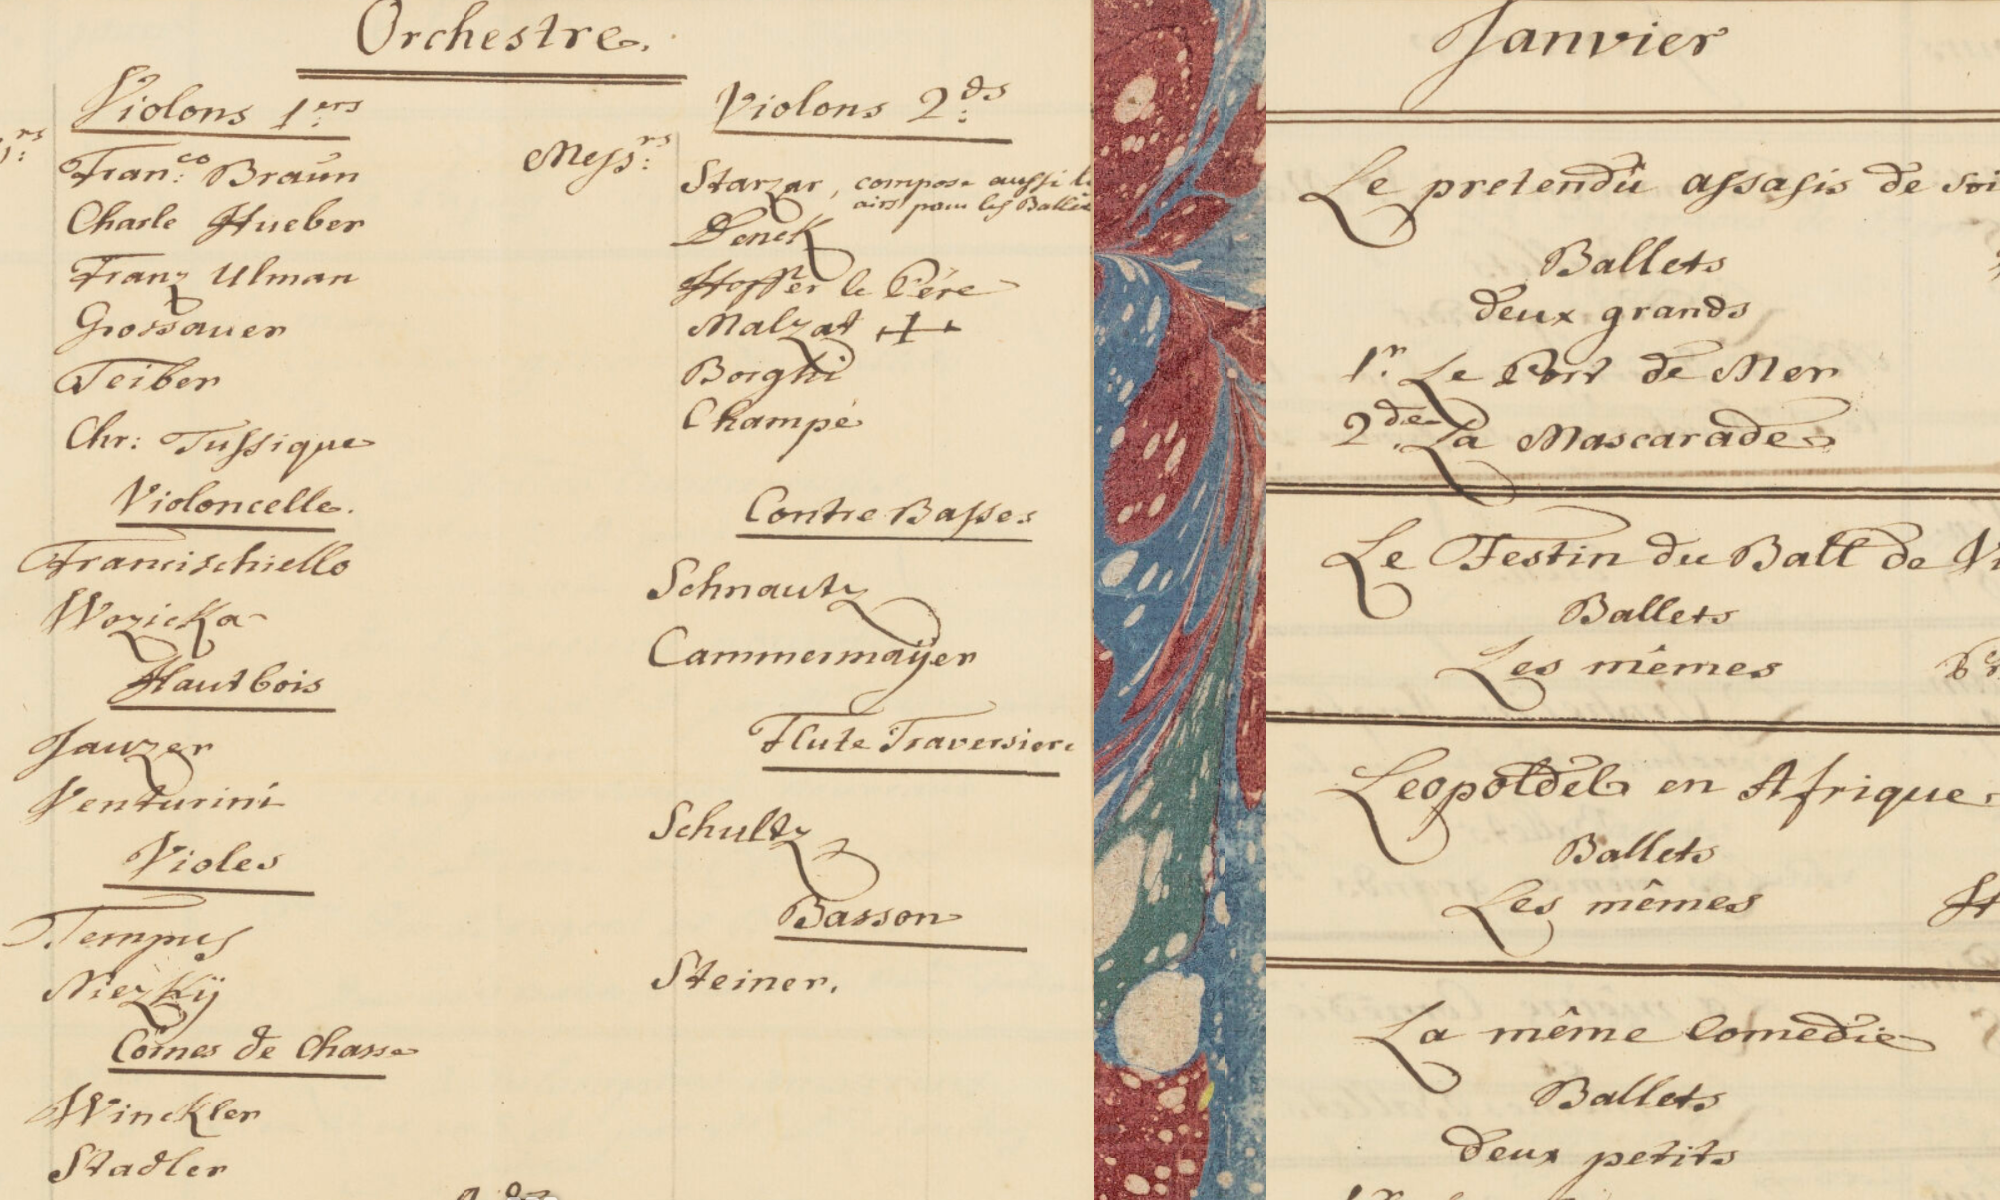 Orchestre.
Violons 1.ers
Fran:co Braun
Charle Hueber
Franz Ulman
Grossauer
Teiber
Chr: Tussique
Violoncelle.
Francischiello
Woziska
Hautbois
Jauzer
Venturini
Violes
Tempus
Niezkÿ
Cornes de Chasse
Winckler
Stadler
Violons 2:ds
Mess:rs
Starzar, compose aussi
airs pour les Ballets
Denck
Hoffer le Pére
Malzat +
Borghi
Champé
Contre Basses
Schnautz
Cammermaÿer
Flute Traversiere
Schultz
Basson
Steiner.
Janvier
Le pretendû assasis de
Ballets
deux grands
1.r Le Port de Mer
2.de La Mascarade
Le Festin du Ball de
Ballets
Les mêmes
Leopoldel en Afrique
Ballets
Les mêmes
La même Comedie
Ballets
deux petits